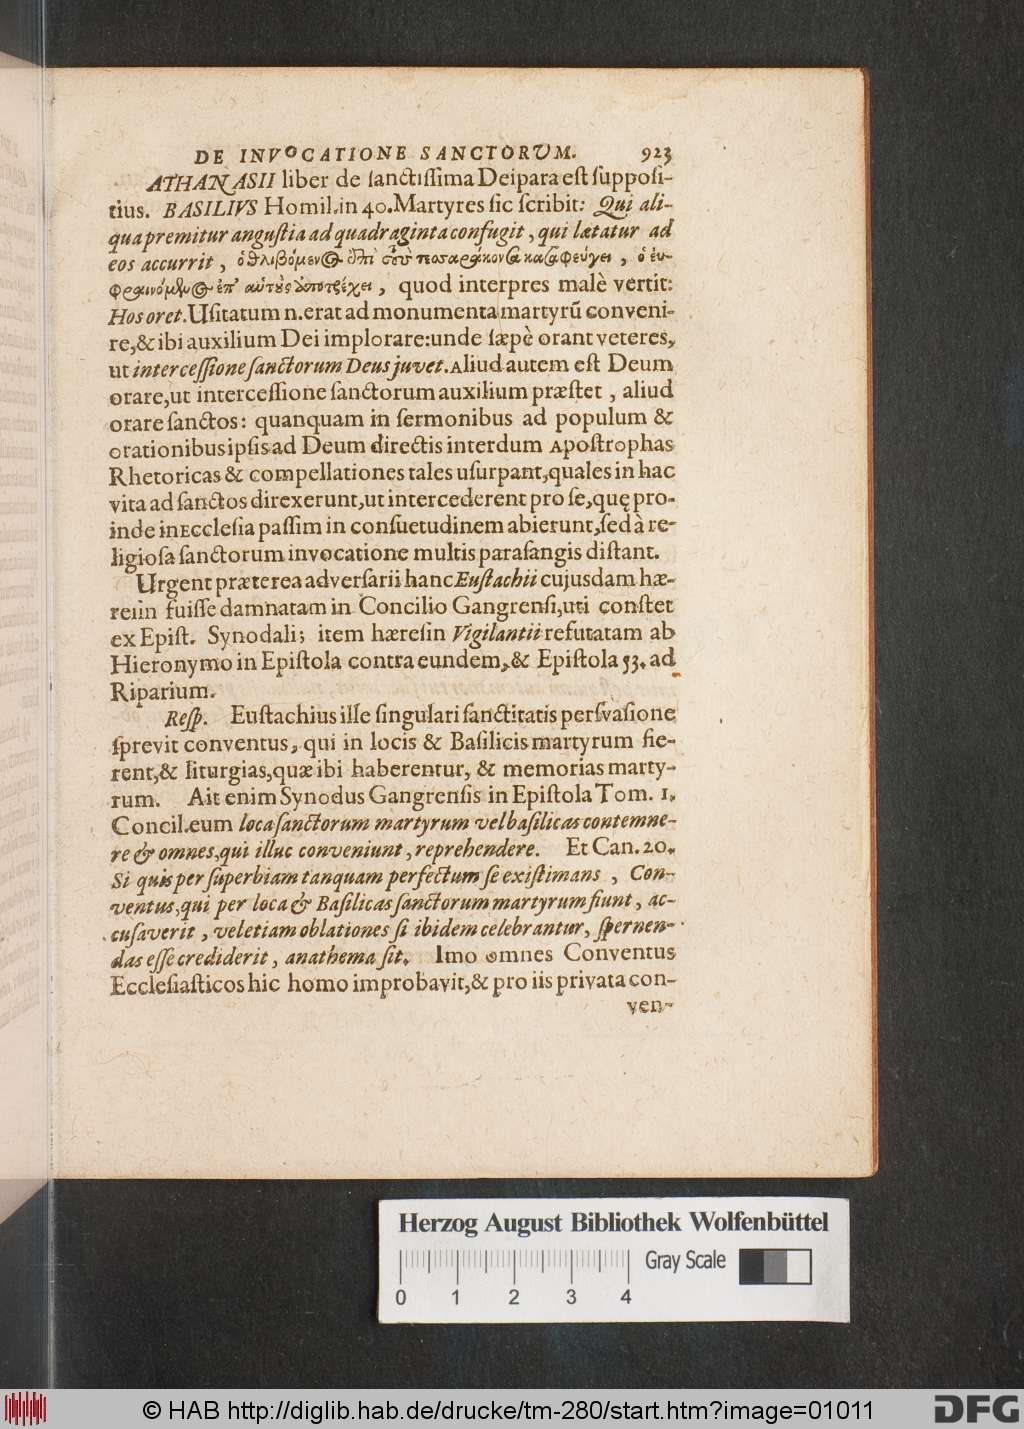 DE INVOCATIONE SANCTORUM. 923
ATHANASII liber de ſanctiſſima Deipara eſt ſuppoſi-
tius. BASILIVS Homil. in 40. Martyres ſic ſcribit: Qui ali-
qua premitur anguſtia ad quadraginta confugit, qui lætatur ad
eos accurrit, ὁ θλιβόμενος ἐπὶ τοὺς τεσσαράκοντα καταφεύγει, ὁ εὐ-
φραινόμενος ἐπ' αὐτοὺς ἀποτρέχει, quod interpres malè vertit:
Hos oret. Uſitatum n. erat ad monumenta martyrũ conveni-
re, & ibi auxilium Dei implorare: unde ſæpè orant veteres,
ut interceſſione ſanctorum Deus juvet. Aliud autem eſt Deum
orare, ut interceſſione ſanctorum auxilium præſtet, aliud
orare ſanctos: quanquam in ſermonibus ad populum &
orationibus ipſis ad Deum directis interdum Apoſtrophas
Rhetoricas & compellationes tales uſurpant, quales in hac
vita ad ſanctos direxerunt, ut intercederent pro ſe, quę pro-
inde in Eccleſia paſſim in conſuetudinem abierunt, ſed à re-
ligioſa ſanctorum invocatione multis paraſangis diſtant.
Urgent præterea adverſarii hanc Euſtachii cujusdam hæ-
reſin fuiſſe damnatam in Concilio Gangrenſi, uti conſtet
ex Epiſt. Synodali; item hæreſin Vigilantii refutatam ab
Hieronymo in Epiſtola contra eundem, & Epiſtola 53. ad
Riparium.
Reſp. Euſtachius ille ſingulari ſanctitatis perſvaſione
ſprevit conventus, qui in locis & Baſilicis martyrum fie-
rent, & liturgias, quæ ibi haberentur, & memorias marty-
rum. Ait enim Synodus Gangrenſis in Epiſtola Tom. 1.
Concil. eum loca ſanctorum martyrum vel baſilicas contemne-
re & omnes, qui illuc conveniunt, reprehendere. Et Can. 20.
Si quis per ſuperbiam tanquam perfectum ſe exiſtimans, Con-
ventus, qui per loca & Baſilicas ſanctorum martyrum fiunt, ac-
cuſaverit, vel etiam oblationes ſi ibidem celebrantur, ſpernen-
das eſſe crediderit, anathema ſit. Imo omnes Conventus
Eccleſiaſticos hic homo improbavit, & pro iis privata con-
ven-
Herzog August Bibliothek Wolfenbüttel
Gray Scale
0 1 2 3 4
© HAB http://diglib.hab.de/drucke/tm-280/start.htm?image=01011
DFG